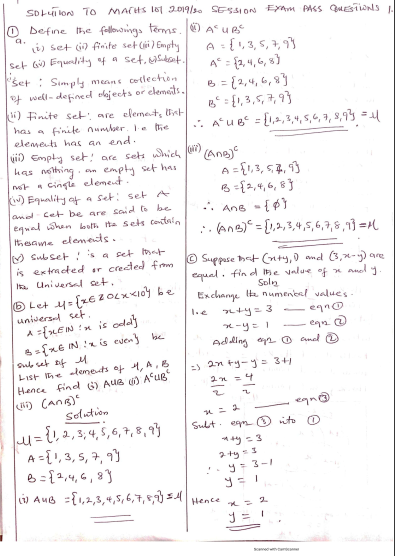 SOLUTION TO MATHS 101 2019/20 SESSION EXAM PASS QUESTIONS 1.
① Define the followings terms.
a. (i) Set (ii) finite set (iii) Empty
set (iv) Equality of a set, (v) Subset.
Set : Simply means collection
of well-defined objects or elements.
(ii) Finite set : are elements that
has a finite number. I.e the
elements has an end.
(iii) Empty set : are sets which
has nothing. an empty set has
not a single element.
(iv) Equality of a set : set A
and set be are said to be
equal when both the sets contain
thesame elements.
(v) Subset : is a set that
is extracted or created from
the Universal set.
(b) Let μ = {x∈Z 0<x<10} be
universal set.
A = {x∈IN : x is odd}
B = {x∈IN : x is even} be
subset of μ
List the elements of μ, A, B
Hence find (i) AUB (ii) AᶜUBᶜ
(iii) (A∩B)ᶜ
Solution
μ = {1, 2, 3, 4, 5, 6, 7, 8, 9}
A = {1, 3, 5, 7, 9}
B = {2, 4, 6, 8}
(i) AUB = {1,2,3,4,5,6,7,8,9} = μ
(ii) Aᶜ U Bᶜ
A = {1, 3, 5, 7, 9}
Aᶜ = {2, 4, 6, 8}
B = {2, 4, 6, 8}
Bᶜ = {1, 3, 5, 7, 9}
∴ Aᶜ U Bᶜ = {1,2,3,4,5,6,7,8,9} = μ
(iii) (A∩B)ᶜ
A = {1, 3, 5, 7, 9}
B = {2, 4, 6, 8}
∴ A∩B = {ϕ}
∴ (A∩B)ᶜ = {1,2,3,4,5,6,7,8,9} = μ
(c) Suppose that (x+y, 1) and (3, x-y) are
equal. find the value of x and y.
Soln
Exchange the numerical values.
I.e x+y = 3 — eqn ①
x-y = 1 — eqn ②
Adding eqn ① and ②
=> 2x+y-y = 3+1
2x = 4
2 2
x = 2 — eqn ③
Subt. eqn ③ into ①
x+y = 3
2+y = 3
∴ y = 3-1
y = 1
Hence x = 2
y = 1
Scanned with CamScanner